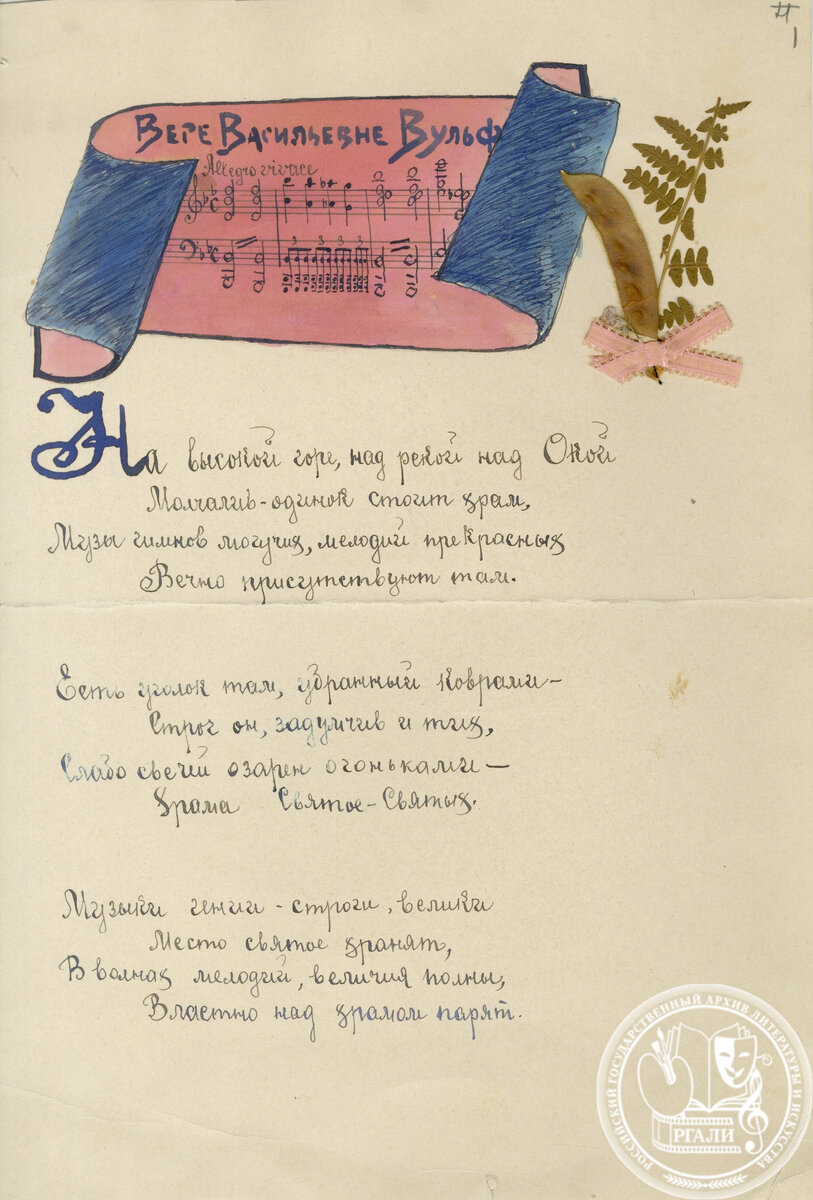 1
Вере Васильевне Вульф
Allegro vivace
3 3 3 3
На высокой горе, над рекой над Окой
Молчалив-одинок стоит храм,
Музы гимнов могучих, мелодий прекрасных
Вечно присутствуют там.
Есть уголок там, убранный коврами –
Строг он, задумчив и тих,
Слабо свечей озарен огоньками –
Храма Святое-Святых.
Музыки гении - строги, велики
Место святое хранят,
В волнах мелодий, величия полны,
Властно над храмом парят.
РОССИЙСКИЙ ГОСУДАРСТВЕННЫЙ АРХИВ ЛИТЕРАТУРЫ И ИСКУССТВА
РГАЛИ